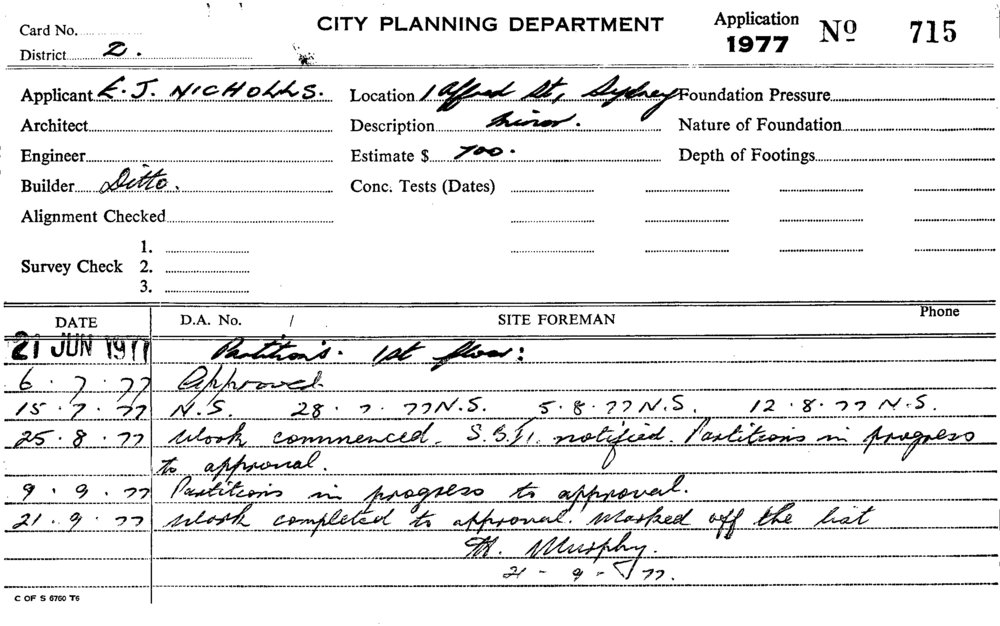 Card No.
CITY PLANNING DEPARTMENT
Application 1977 No 715
District 2.
Applicant E. J. NICHOLLS. Location 1 Alfred St, Sydney Foundation Pressure
Architect Description Minor. Nature of Foundation
Engineer Estimate $ 700. Depth of Footings
Builder Ditto. Conc. Tests (Dates)
Alignment Checked
1.
Survey Check 2.
3.
DATE D.A. No. / SITE FOREMAN Phone
21 JUN 1977 Partitions. 1st floor:
6.7.77 Approved.
15.7.77 N.S. 28.7.77 N.S. 5.8.77 N.S. 12.8.77 N.S.
25.8.77 Work commenced. notified. Partitions in progress
to approval.
9.9.77 Partitions in progress to approval.
21.9.77 Work completed to approval. Marked off the list
M. Murphy.
21-9-77.
C OF S 6760 T6